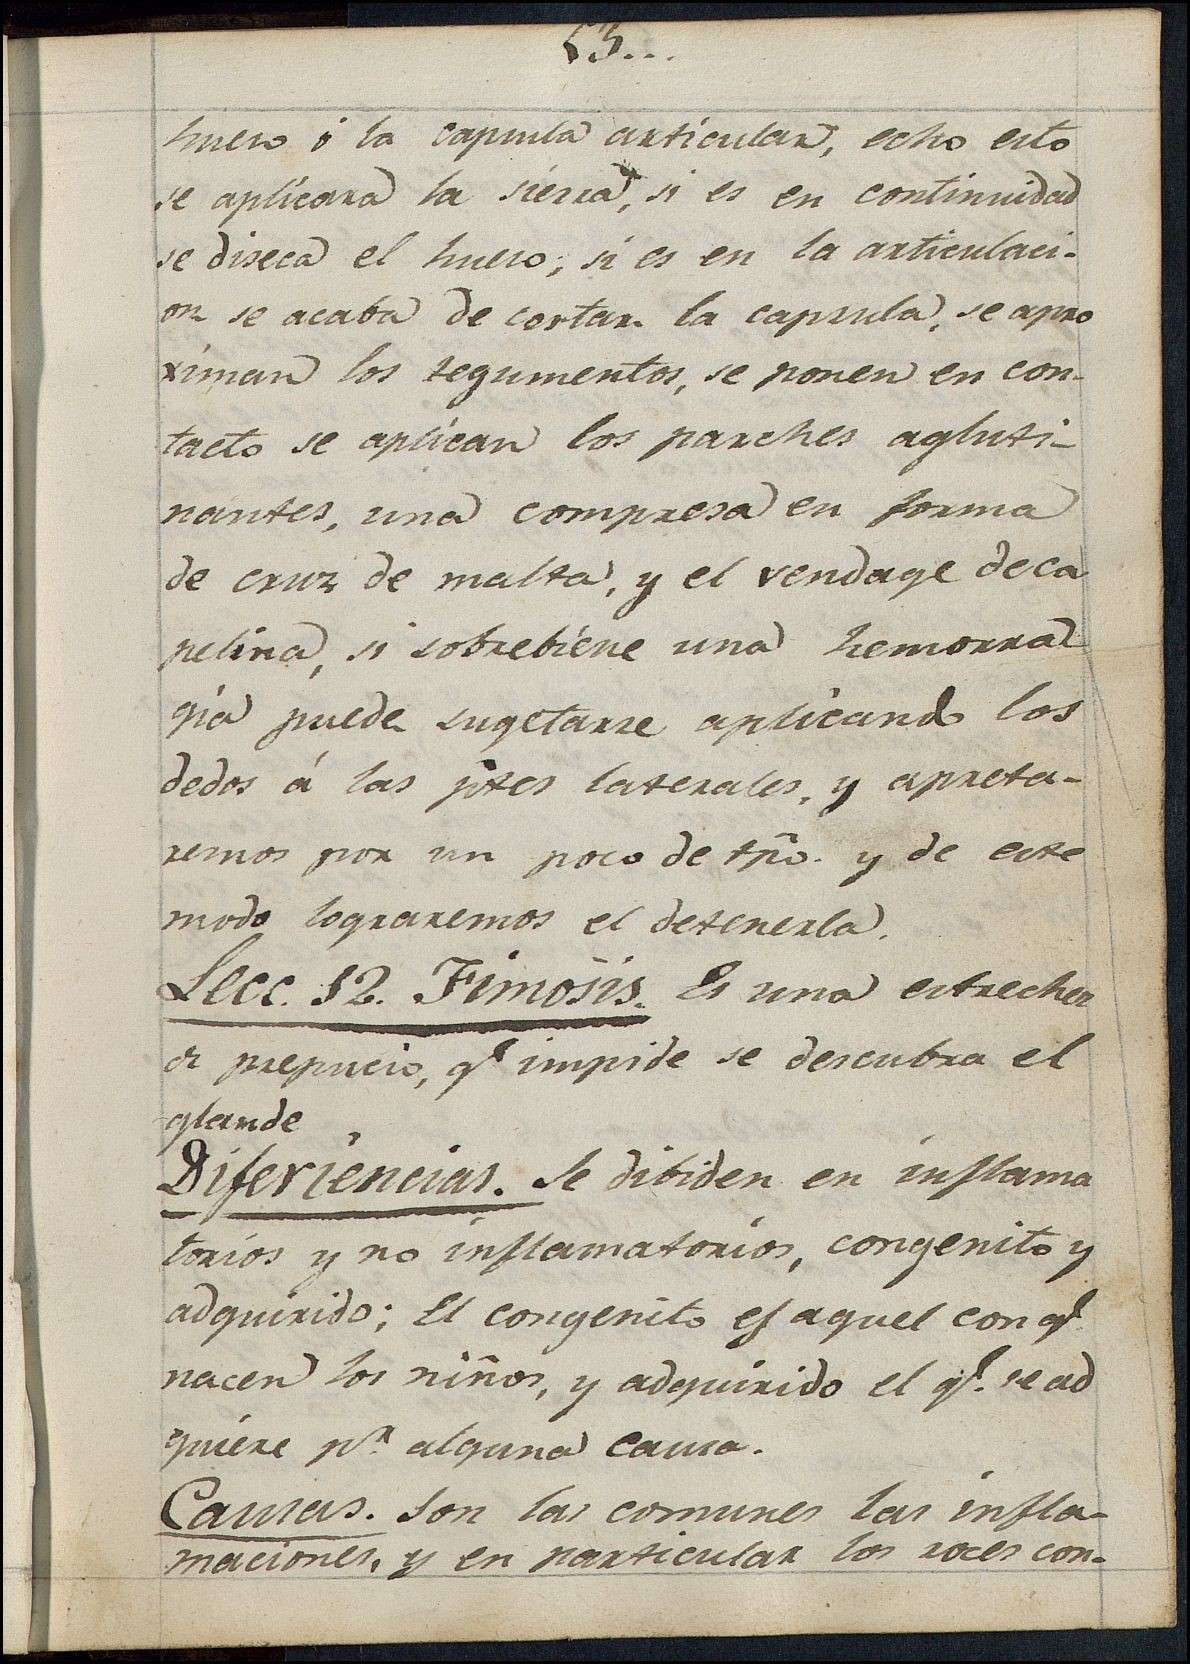 53...
hueso ó la capsula articular, echo esto
se aplicara la sierra, si es en continuidad
se diseca el hueso; si es en la articulaci-
on se acaba de cortar la capsula, se apro
ximan los tegumentos, se ponen en con-
tacto se aplican los parches agluti-
nantes, una compresa en forma
de cruz de malta, y el vendage de ca
pelina, si sobrebiene una hemorra
gia puede sugetarse aplicando los
dedos á las ptes laterales, y apreta-
remos por un poco de tpo. y de este
modo lograremos el detenerla.
Lecc. 52. Fimosis. Es una estrechez
de prepucio, qe impide se descubra el
glande
Diferiencias. Se dibiden en inflama
torios y no inflamatorios, congenito y
adquirido; El congenito es aquel con qe
nacen los niños, y adquirido el qe. se ad
quiere pr. alguna causa.
Causas. Son las comunes las infla-
maciones, y en particular los roces con-